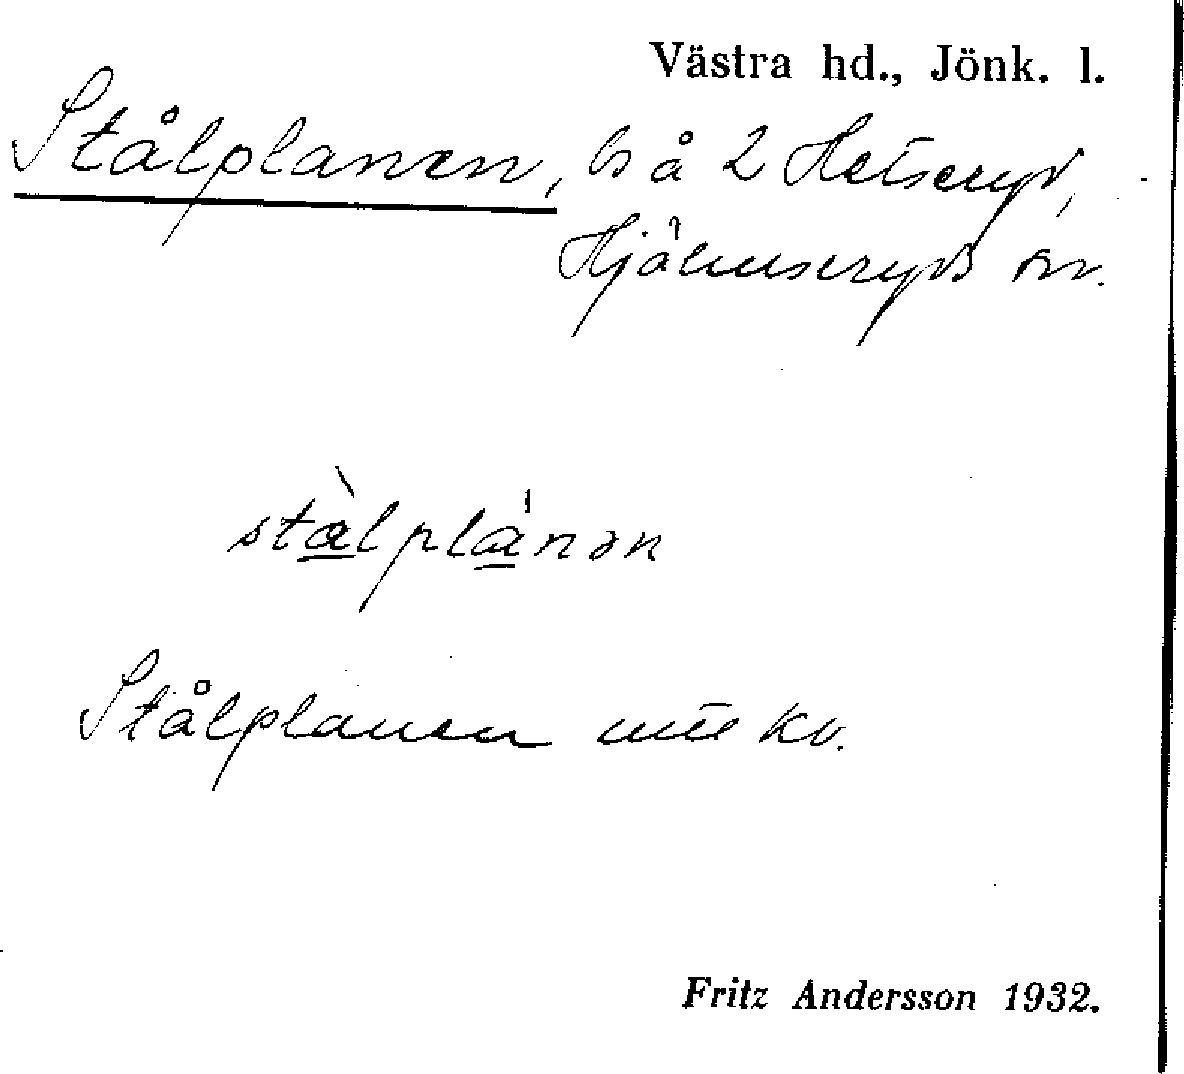 Västra hd., Jönk. l.
Stålplanen, ls å 2 Hetseryd,
Hjälmseryds sn.
stàlplánən
Stålplanen kv.
Fritz Andersson 1932.